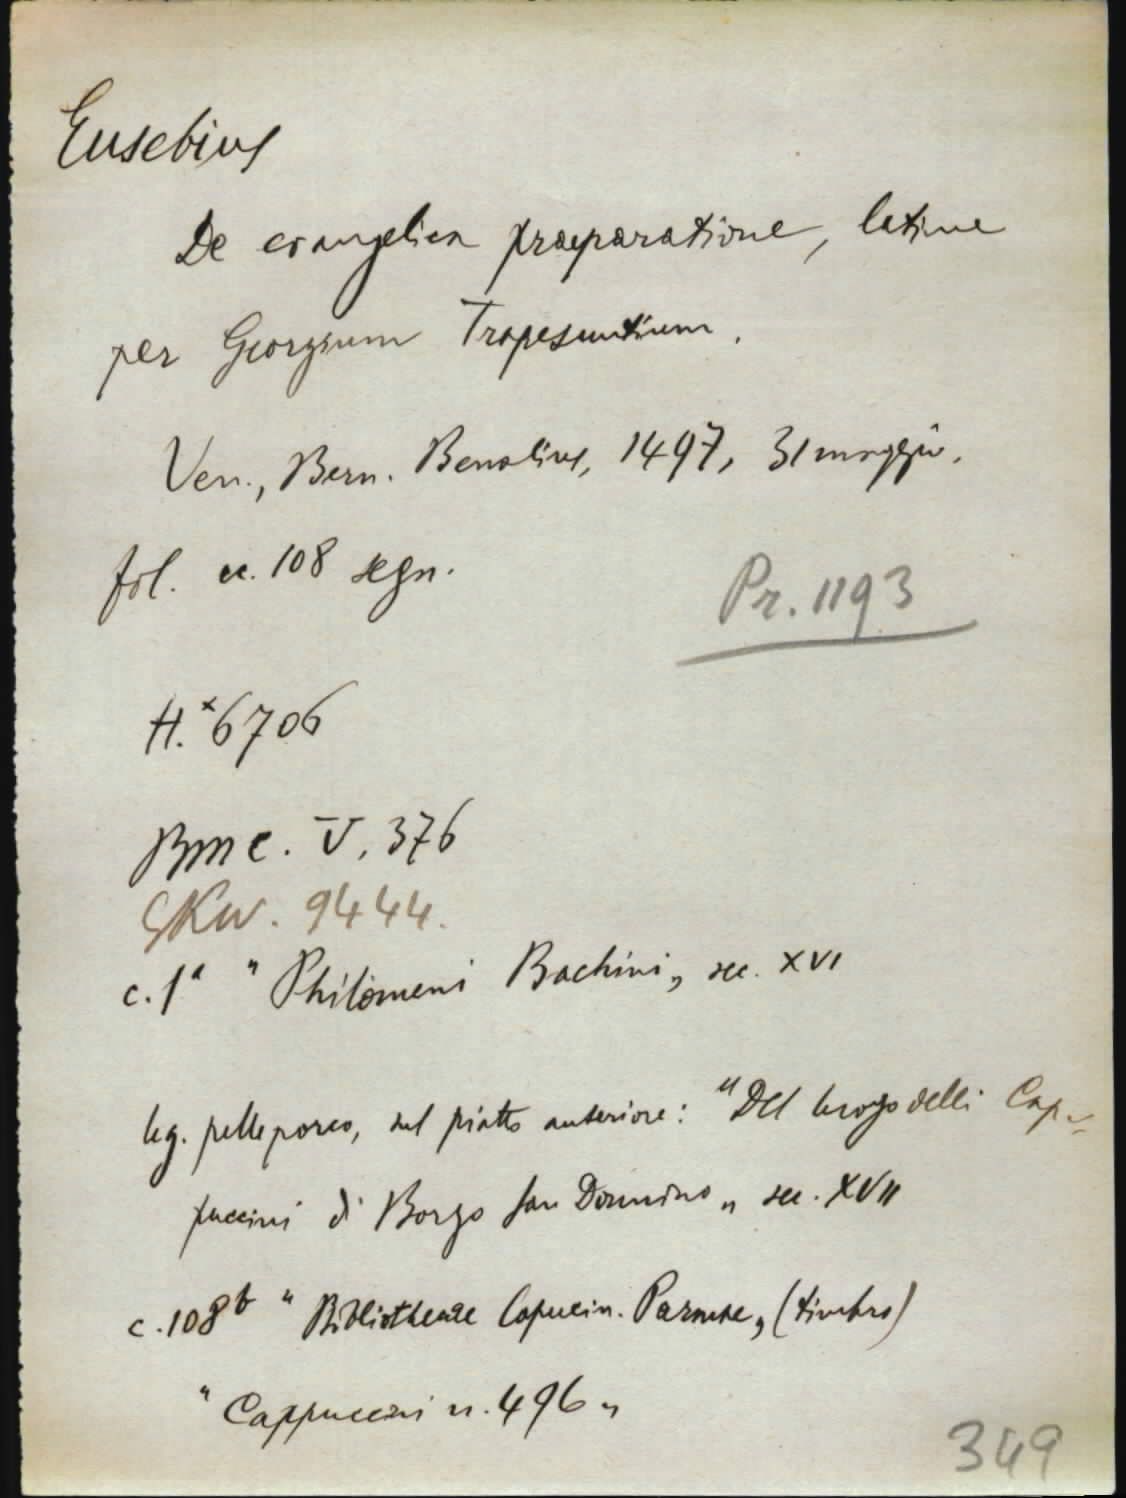 Eusebius
De evangelica praeparatione, latine
per Georgium Trapesuntium.
Ven., Bern. Benalius, 1497, 31 maggio.
fol. cc. 108 segn.
Pr. 1193
H.*6706
BMC. V, 376
GKW. 9444.
c. 1ª "Philomeni Bachini„ sec. XVI
leg. pelle porco, sul piatto anteriore: "Del luogo delli Cap-
puccini di Borgo San Donnino„ sec. XVII
c. 108ᵇ "Bibliothecae Capucin. Parmae„ (timbro)
"Cappuccini n. 496„
349